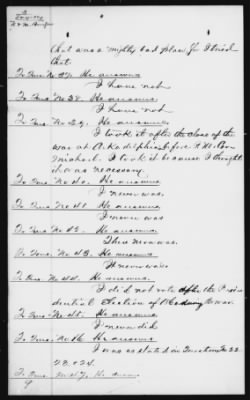 that was a mighty bad place for I tried
that.
To Ques. No 37. He answers
I have not
To Ques. No 38. He answers
I have not
To Ques. No 39. He answers
I took it after the close of the
war at Arkadelphia before
I took it because I thought
it was necessary.
To Ques. No 40. He answers
I never was.
To Ques. No 41. He answers
I never was
To Ques. No 42. He answers.
There never was.
To Ques. No 43. He answers.
It never was
To Ques. No 44. He answers.
I did not vote the Presi
dential Election of war.
To Ques. No 45. He answers
I never did
To Ques. No 46. He answers
I was as stated in Question No 22
23 & 24.
To Ques. No 47. He answers
9